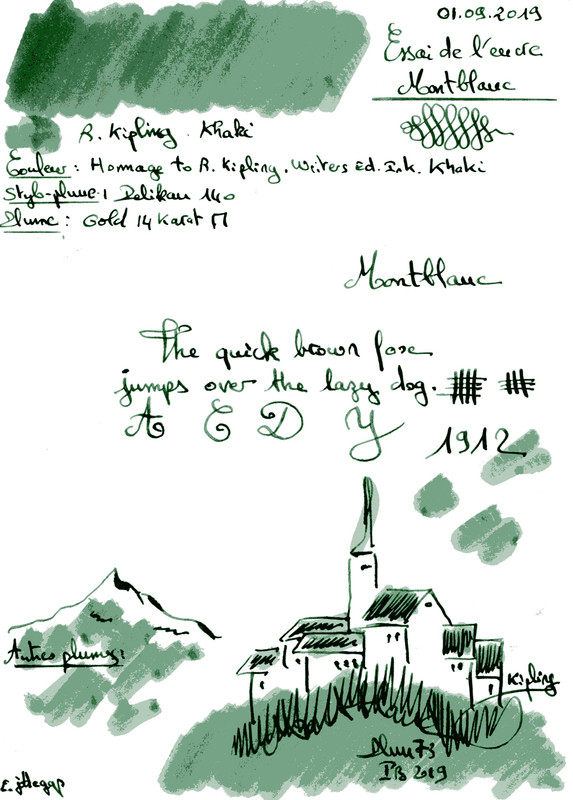 01.09.2019
Essai de l'encre
Montblanc
R. Kipling Khaki
Couleur : Homage to R. Kipling. Writers Ed. Ink. Khaki
Stylo-plume : Pelikan 140
Plume : Gold 14 Karat M
Montblanc
The quick brown fox
jumps over the lazy dog.
A E D Y
1912
Autres plumes :
Kipling
2019